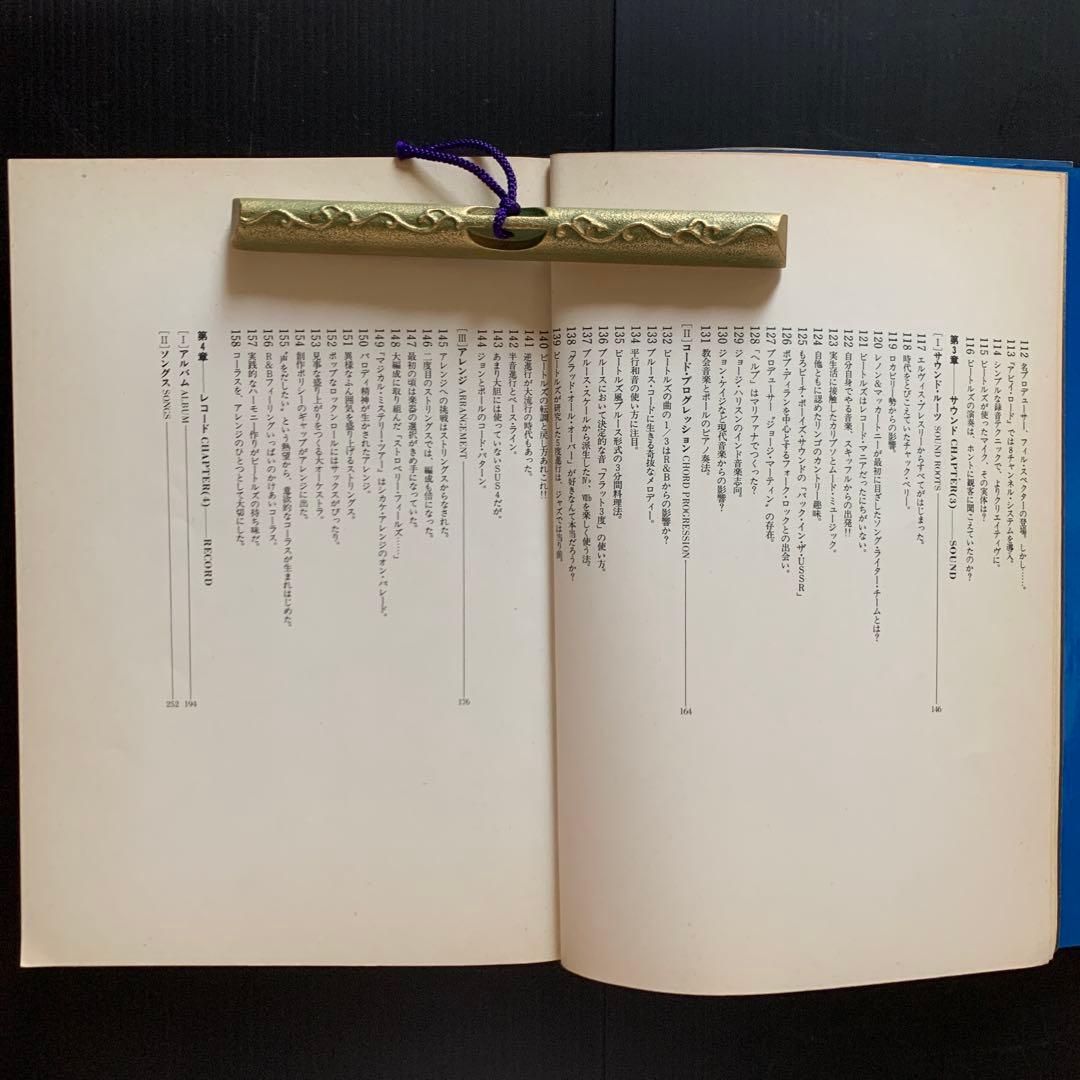 112 名プロデューサー、フィル・スペクターの登場。しかし……。
113 「アビイ・ロード」では8チャンネル・システムを導入。
114 シンプルな録音テクニックで、よりクリエイティヴに。
115 ビートルズが使ったマイク、その実体は?
116 ビートルズの演奏は、ホントに観客に聞こえていたのか?
第3章——サウンド CHAPTER(3)——SOUND
[I] サウンド・ルーツ SOUND ROOTS——146
117 エルヴィス・プレスリーからすべてがはじまった。
118 時代をとびこえていたチャック・ベリー。
119 ロカビリー勢からの影響。
120 レノン&マッカートニーが最初に目ざしたソング・ライター・チームとは?
121 ビートルズはレコード・マニアだったにちがいない。
122 自分自身でやる音楽、スキッフルからの出発!!
123 実生活に接触したカリプソとムード・ミュージック。
124 自他ともに認めたリンゴのカントリー趣味。
125 もろビーチ・ボーイズ・サウンドの「バック・イン・ザ・USSR」
126 ボブ・ディランを中心とするフォーク・ロックとの出会い。
127 プロデューサー〝ジョージ・マーティン〟の存在。
128 「ヘルプ」はマリファナでつくった?
129 ジョージ・ハリスンのインド音楽志向。
130 ジョン・ケイジなど現代音楽からの影響?
131 教会音楽とポールのピアノ奏法。
[II] コード・プログレッション CHORD PROGRESSION——164
132 ビートルズの曲の1/3はR&Bからの影響か?
133 ブルース・コードに生きる奇抜なメロディー。
134 平行和音の使い方に注目。
135 ビートルズ風ブルース形式の3分間料理法。
136 ブルースにおいて決定的な音「フラット3度」の使い方。
137 ブルース・スケールから派生したⅣ7、Ⅶbを楽しく使う法。
138 「グラッド・オール・オーバー」が好きなんて本当だろうか?
139 ビートルズが研究した5度進行は、ジャズでは当り前。
140 ビートルズの転調と戻し方あれこれ!!
141 逆進行が大流行の時代もあった。
142 半音進行とベース・ライン。
143 あまり大胆には使っていないSUS4だが。
144 ジョンとポールのコード・パターン。
[III] アレンジ ARRANGEMENT——176
145 アレンジへの挑戦はストリングスからなされた。
146 二度目のストリングスでは、編成も倍になった。
147 最初の頃は楽器の選択がきめ手になっていた。
148 大編成に取り組んだ「ストロベリー・フィールズ……」
149 「マジカル・ミステリー・ツアー」はシカケ・アレンジのオン・パレード。
150 パロディ精神が生かされたアレンジ。
151 異様なふん囲気を盛り上げるストリングス。
152 ポップなロックンロールにはサックスがぴったり。
153 見事な盛り上がりをつくる大オーケストラ。
154 創作ポリシーのギャップがアレンジに出た。
155 〝声をだしたい〟という熱望から、意欲的なコーラスが生まれはじめた。
156 R&Bフィーリングいっぱいのかけあいコーラス。
157 実践的なハーモニー作りがビートルズの持ち味だ。
158 コーラスを、アレンジのひとつとして大切にした。
第4章——レコード CHAPTER(4)——RECORD
[I] アルバム ALBUM——194
[II] ソングス SONGS——252